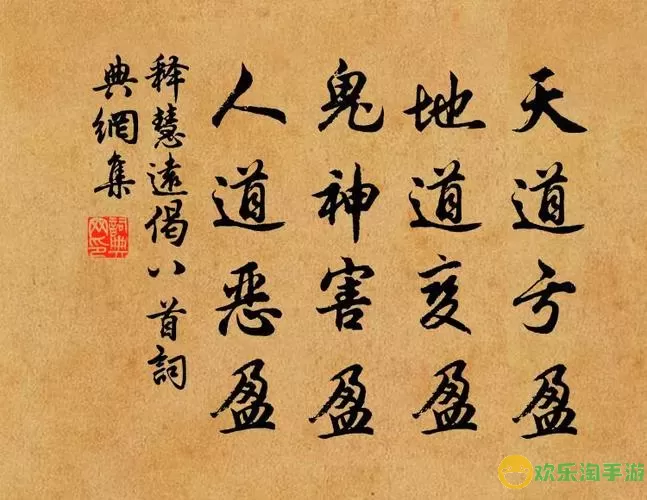 天道亏盈
地道变盈
鬼神害盈
人道恶盈
释慧遠偈八首詞
典網集
詞典
欢乐淘手游